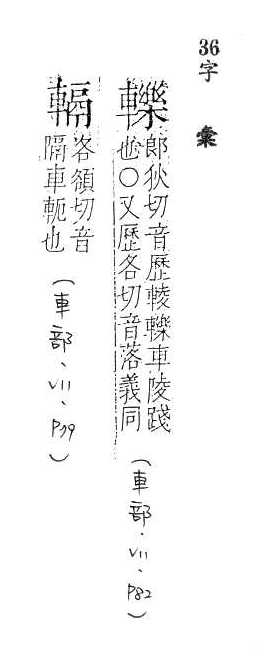 36字彙
轢
郎狄切音歷輘轢車陵踐
也○又歷各切音落義同
(車部·VII、P82)
䡏
各額切音
隔車軛也
(車部、VII、P79)